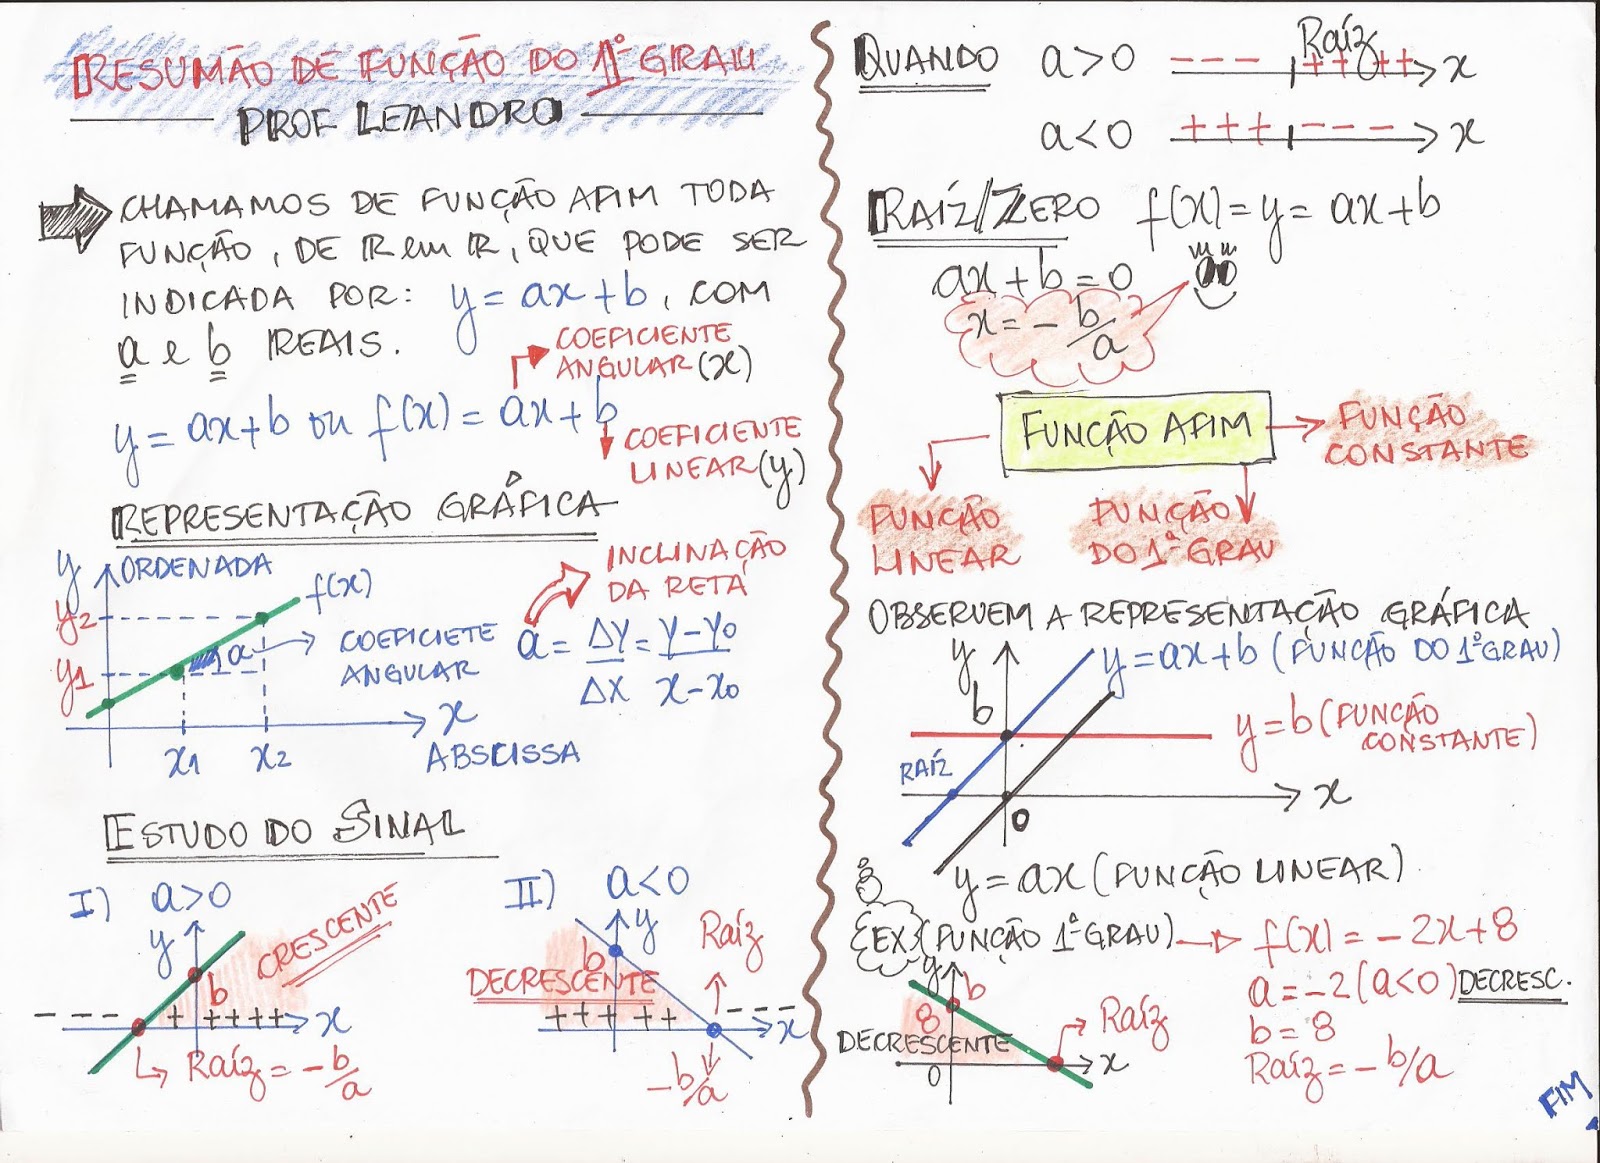 RESUMÃO DE FUNÇÃO DO 1º GRAU
PROF LEANDRO
CHAMAMOS DE FUNÇÃO AFIM TODA
FUNÇÃO, DE R em R, QUE PODE SER
INDICADA POR: y = ax + b, COM
a e b REAIS.
COEFICIENTE
ANGULAR (x)
y = ax + b ou f(x) = ax + b
COEFICIENTE
LINEAR (y)
REPRESENTAÇÃO GRÁFICA
y ORDENADA
f(x)
y2
y1
a
COEFICIETE
ANGULAR
x1 x2
x
ABSCISSA
INCLINAÇÃO
DA RETA
a = ΔY/ΔX = y-y0/x-x0
ESTUDO DO SINAL
I) a>0
y
b
CRESCENTE
- - - + ++++ x
Raíz = -b/a
II) a<0
y
b
Raíz
DECRESCENTE
+++ ++ - - - x
-b/a
QUANDO a>0 - - - Raíz ++++ x
a<0 +++ - - - x
RAÍZ/ZERO f(x) = y = ax + b
ax + b = 0
x = -b/a
FUNÇÃO AFIM
FUNÇÃO
CONSTANTE
FUNÇÃO
LINEAR
FUNÇÃO
DO 1º GRAU
OBSERVEM A REPRESENTAÇÃO GRÁFICA
y
y = ax + b (FUNÇÃO DO 1º GRAU)
b
y = b (FUNÇÃO
CONSTANTE)
RAÍZ
x
0
y = ax (FUNÇÃO LINEAR)
EX (FUNÇÃO 1º GRAU) → f(x) = -2x+8
a = -2 (a<0) DECRESC.
b = 8
Raíz = -b/a
y
b
8
DECRESCENTE
Raíz
0
x
FIM